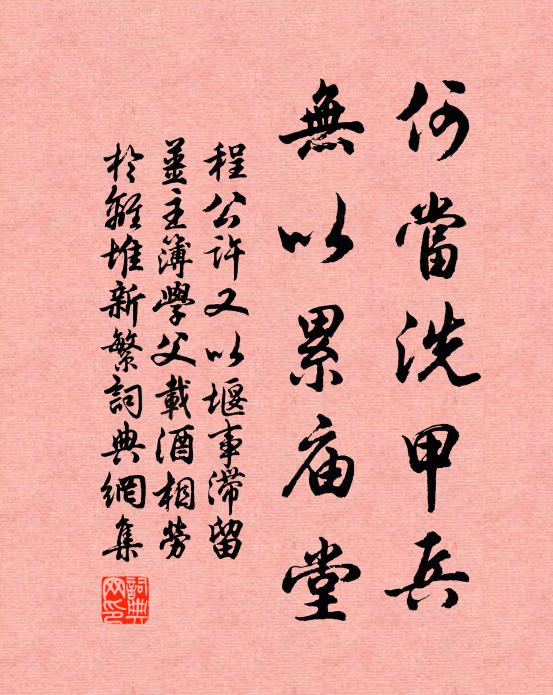 何當洗甲兵
無以累庙堂
程公許又以堰事滯留
薑主簿學父載酒相勞
於離堆新繁詞典網集
詞典网印